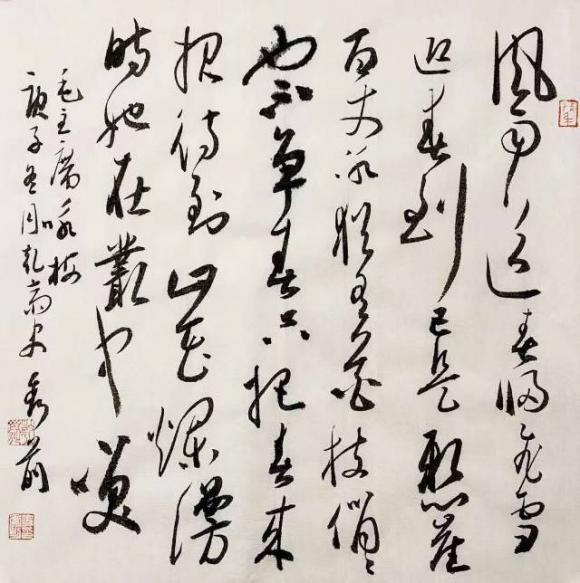 風雨送春歸飛雪
迎春到已是懸崖
百丈冰猶有花枝俏〻
也不争春只把春来
报待到山花爛漫
時她在叢中笑
毛主席咏梅
庚子冬月